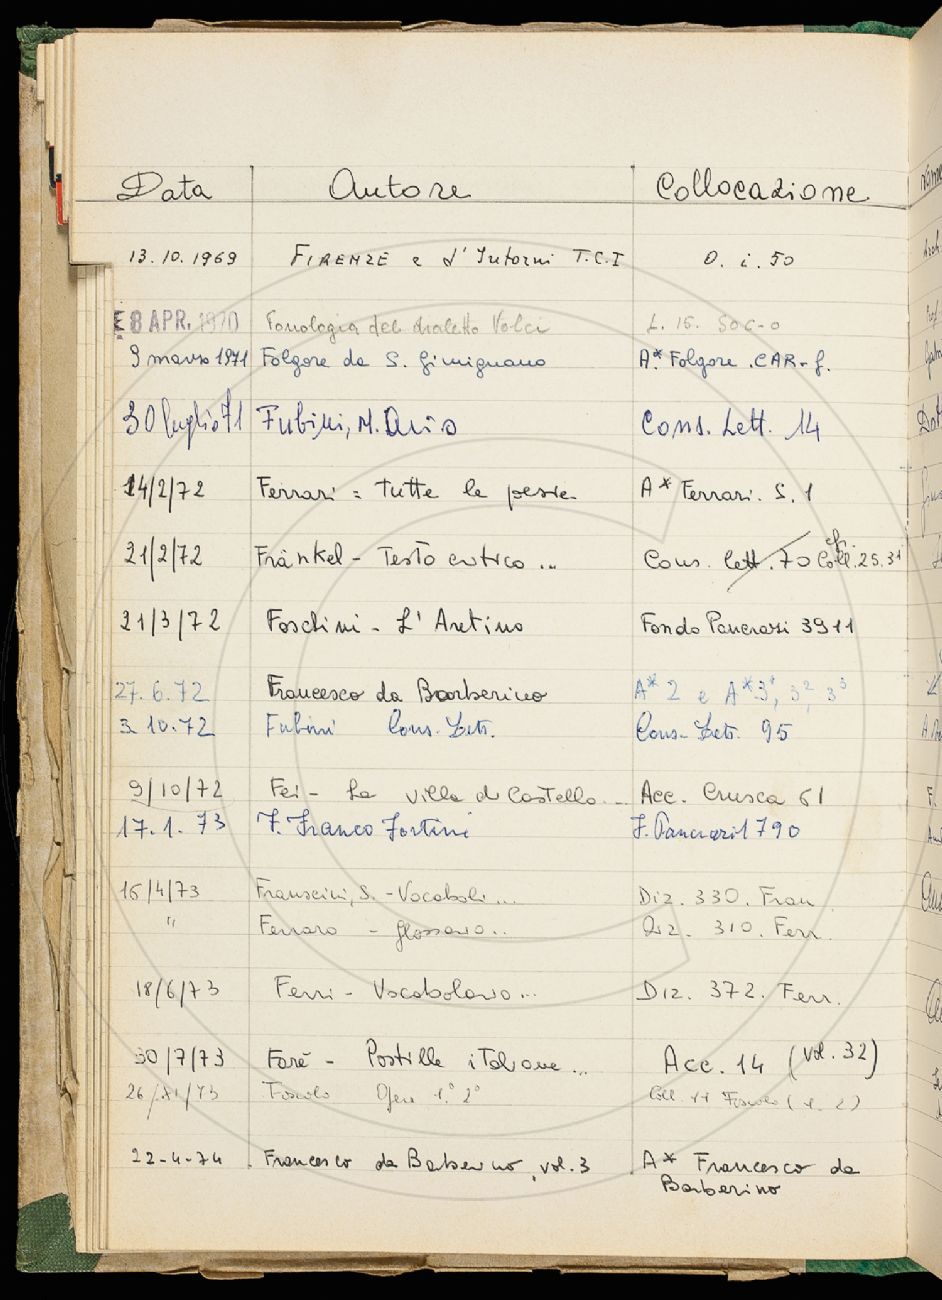 Data Autore Collocazione
13.10.1969 FIRENZE e d'Intorni T.C.I O. i. 50
8 APR. 1970 Fonologia del dialetto Velci L. 16.
9 marzo 1971 Folgore da S. Gimignano A* Folgore . CAR - f.
30 luglio 71 Fubini, M. Cons. Lett. 14
14/2/72 Ferrari = tutte le poesie A* Ferrari. S. 1
21/2/72 Fränkel - Testo critico ... Cons. Lett. 70 cfr. Coll. 25.31
21/3/72 Foschini - L'Aretino Fondo Pancrazi 3911
27.6.72 Francesco da Barberino A* 2 e A* 3¹, 3², 3³
3.10.72 Fubini Cons. Lett. Cons. Lett. 95
9/10/72 Fei - La villa di Castello ... Acc. Crusca 61
17.1.73 F. Franco Fortini F. Pancrazi 1790
16/4/73 Franscini, S. - Vocaboli ... Diz. 330. Fran
" Ferraro - glossario .. Diz. 310. Ferr.
18/6/73 Ferri - Vocabolario ... Diz. 372. Ferr.
30/7/73 Faré - Postille italiane ... Acc. 14 (vol. 32)
26/XI/73 Foscolo Opere 1° 2° Coll. Foscolo (1. 2)
22-4-74 Francesco da Barberino, vol. 3 A* Francesco da
Barberino